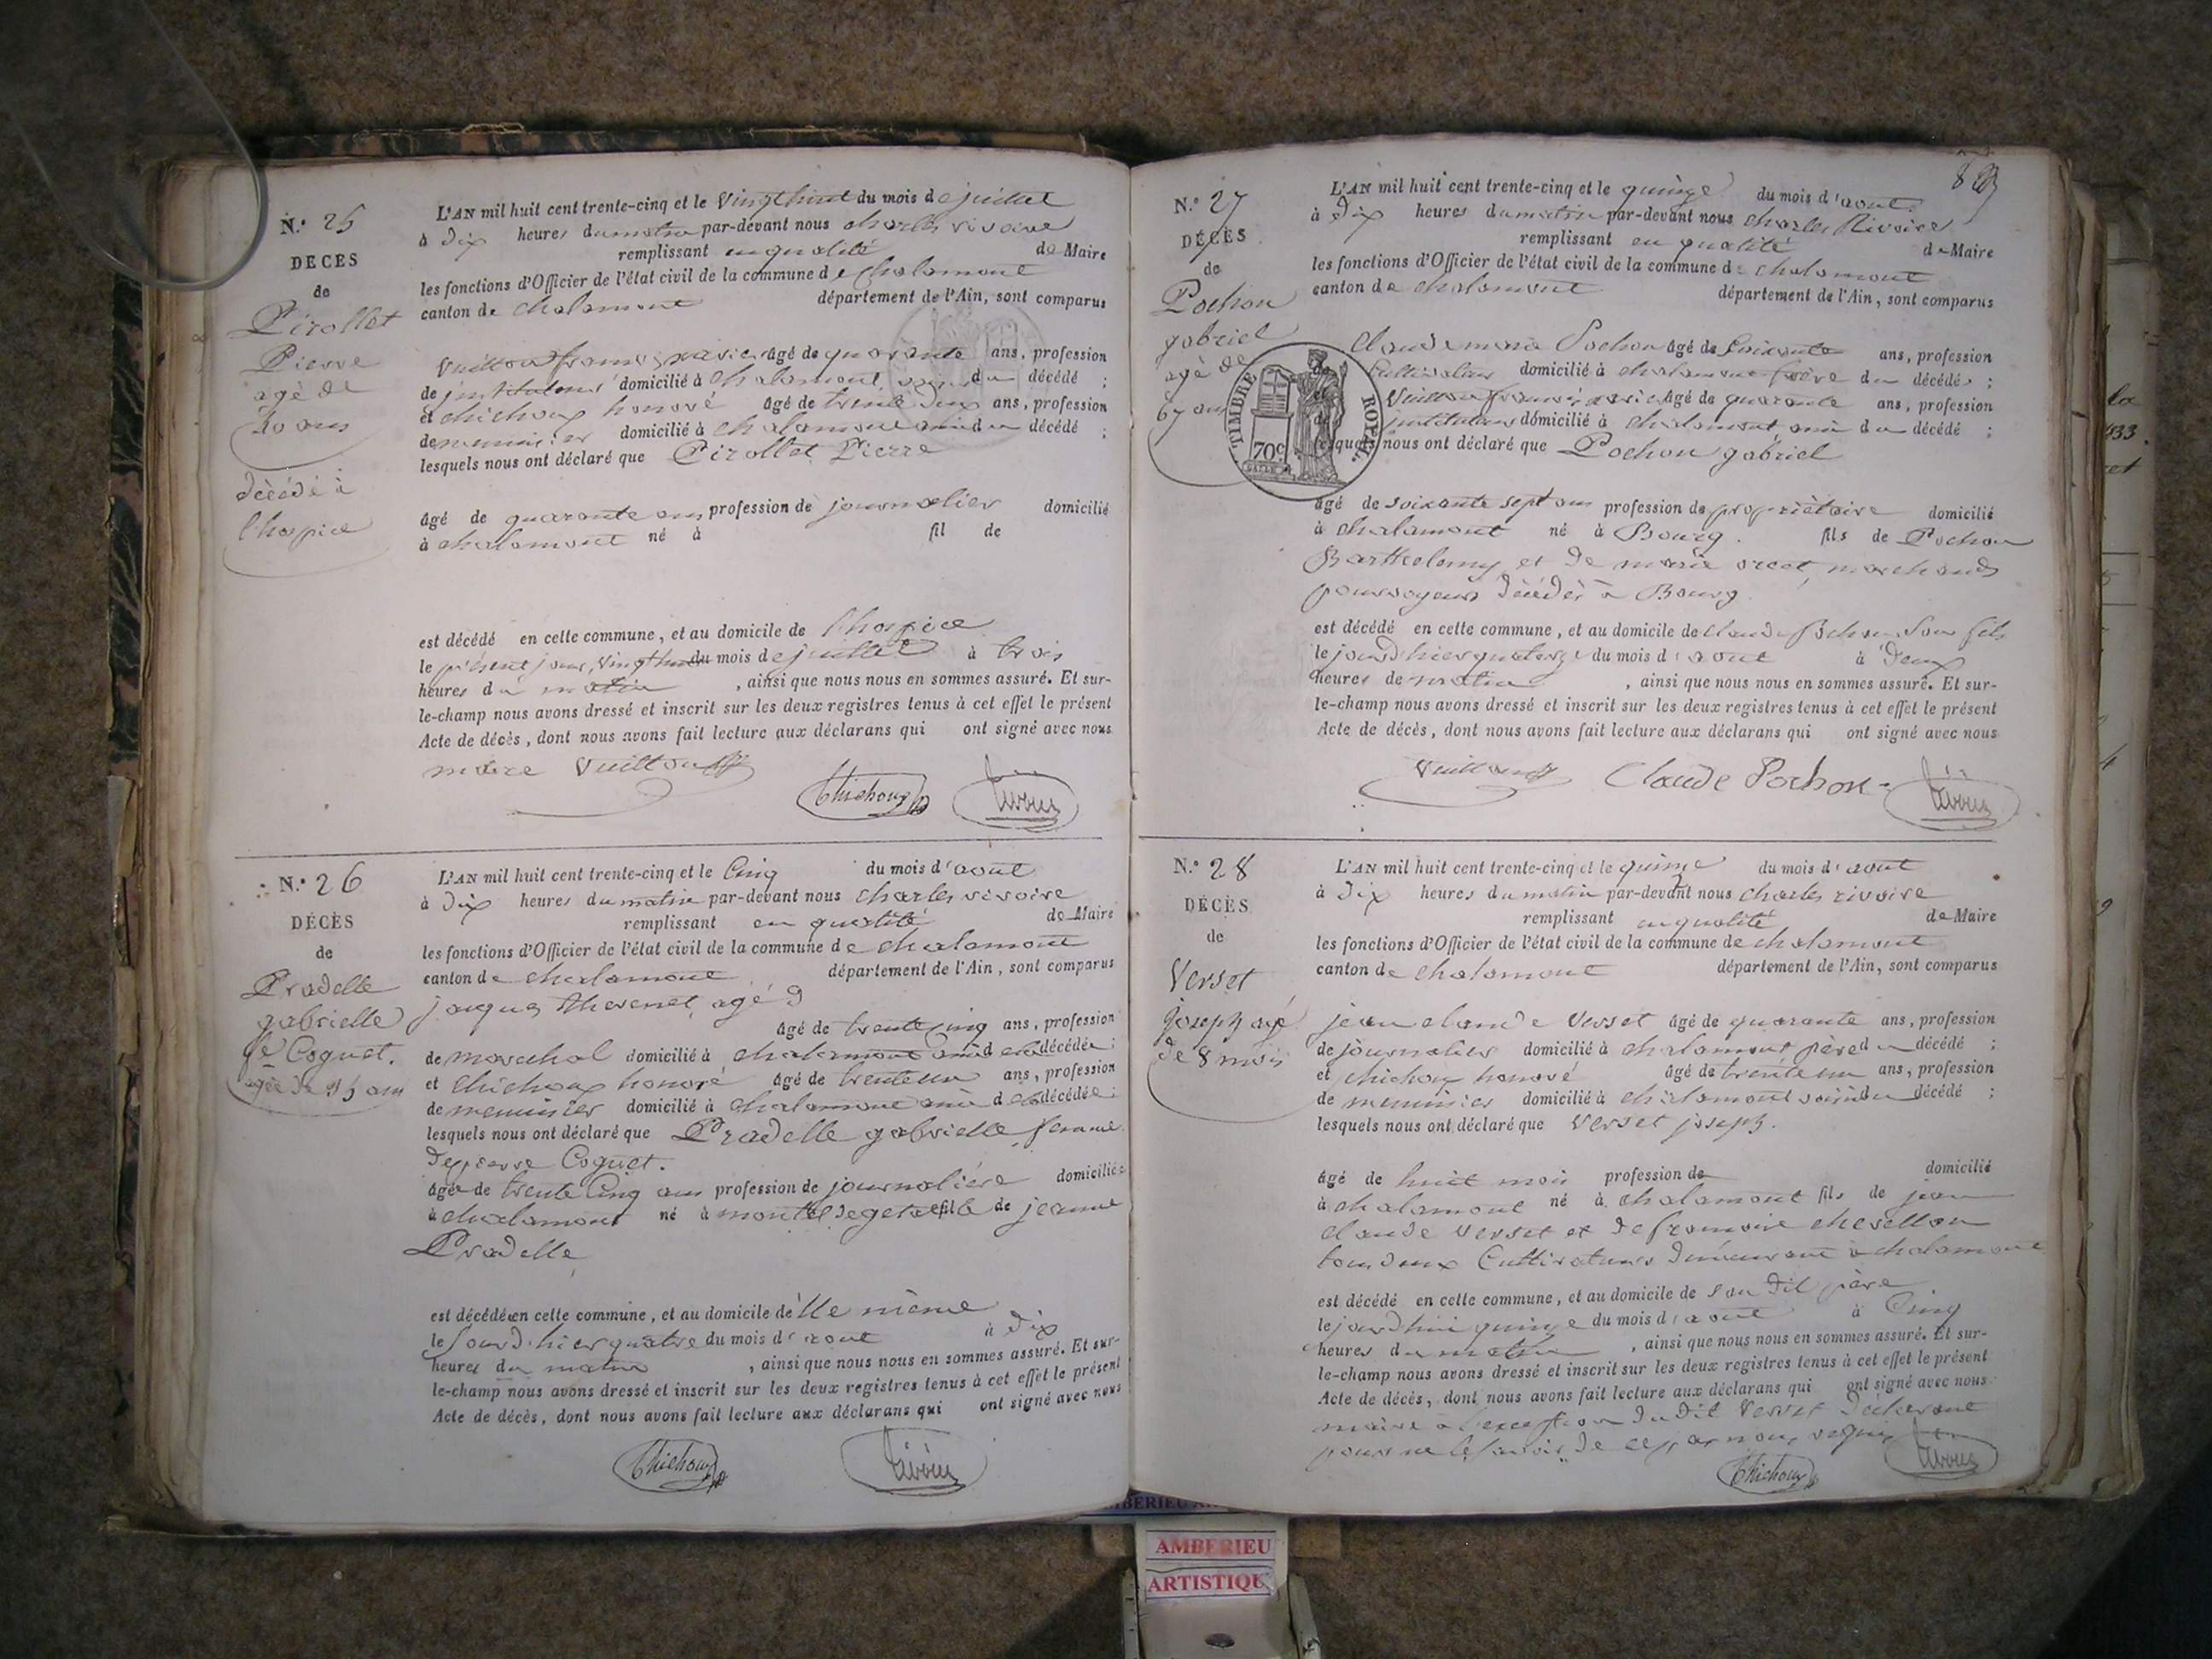 N.° 25
DECES
de
Pirollet
Pierre
agé de
40 ans
décédé à
l'hospice
L'AN mil huit cent trente-cinq et le vingthuit du mois de juillet
à dix heures du matin par-devant nous charles rivoire
remplissant en qualité de Maire
les fonctions d'Officier de l'état civil de la commune de chalamont
canton de chalamont département de l'Ain, sont comparus
Vuitton françois xavier âgé de quarante ans, profession
de instituteur domicilié à chalamont, du décédé ;
et chichoux honoré âgé de trente deux ans, profession
de menuisier domicilié à chalamont ami du décédé ;
lesquels nous ont déclaré que Pirollet Pierre
âgé de quarante ans profession de journalier domicilié
à chalamont né à fil de
est décédé en cette commune, et au domicile de l'hospice
le présent jour vingthuit du mois de juillet à trois
heures du matin , ainsi que nous nous en sommes assuré. Et sur-
le-champ nous avons dressé et inscrit sur les deux registres tenus à cet effet le présent
Acte de décès, dont nous avons fait lecture aux déclarans qui ont signé avec nous
maire Vuitton
Chichoux
N.° 26
DÉCÈS
de
Pradelle
gabrielle
fe Coquet.
agée de 35 ans
L'AN mil huit cent trente-cinq et le Cinq du mois d'aout
à dix heures du matin par-devant nous charles rivoire
remplissant en qualité de Maire
les fonctions d'Officier de l'état civil de la commune de chalamont
canton de chalamont département de l'Ain, sont comparus
jacques thevenet, agé d
âgé de trente cinq ans, profession
de marechal domicilié à chalamont ami de la décédée ;
et chichoux honoré âgé de trente un ans, profession
de menuisier domicilié à chalamont ami de la décédée ;
lesquels nous ont déclaré que Pradelle gabrielle femme
de pierre Coquet.
âgée de trente Cinq ans profession de journalière domiciliée
à chalamont né à fille de jeanne
Pradelle
est décédée en cette commune, et au domicile d'elle même
le jourd'hier quatre du mois d'aout à dix
heures du matin , ainsi que nous nous en sommes assuré. Et sur-
le-champ nous avons dressé et inscrit sur les deux registres tenus à cet effet le présent
Acte de décès, dont nous avons fait lecture aux déclarans qui ont signé avec nous
Chichoux
N.° 27
DÉCÈS
de
Pochon
gabriel
agé de
67 ans
L'AN mil huit cent trente-cinq et le quinze du mois d'aout
à dix heures du matin par-devant nous charles Rivoire
remplissant en qualité de Maire
les fonctions d'Officier de l'état civil de la commune de chalamont
canton de chalamont département de l'Ain, sont comparus
Claude marie Pochon âgé de soixante ans, profession
Cultivateur domicilié à chalamont frère du décédé ;
Vuitton françois xavier âgé de quarante ans, profession
instituteur domicilié à chalamont ami du décédé ;
lesquels nous ont déclaré que Pochon gabriel
TIMBRE ROYAL
70c
âgé de soixante sept ans profession de propriètaire domicilié
à chalamont né à Bourg. fils de Pochon
Barthelemy et de marie marchands
décédés à Bourg.
est décédé en cette commune, et au domicile de claude Pochon son fils
le jourd'hier quatorze du mois d'aout à deux
heures de matin , ainsi que nous nous en sommes assuré. Et sur-
le-champ nous avons dressé et inscrit sur les deux registres tenus à cet effet le présent
Acte de décès, dont nous avons fait lecture aux déclarans qui ont signé avec nous
Vuitton Claude Pochon
N.° 28
DÉCÈS
de
Verset
joseph agé
de 8 mois
L'AN mil huit cent trente-cinq et le quinze du mois d'aout
à dix heures du matin par-devant nous charles rivoire
remplissant en qualité de Maire
les fonctions d'Officier de l'état civil de la commune de chalamont
canton de chalamont département de l'Ain, sont comparus
jean claude Verset âgé de quarante ans, profession
de journalier domicilié à chalamont père du décédé ;
et chichoux honoré âgé de trente un ans, profession
de menuisier domicilié à chalamont voisin du décédé ;
lesquels nous ont déclaré que Verset joseph.
âgé de huit mois profession de domicilié
à chalamont né à chalamont fils de jean
claude Verset et de françoise
tous deux Cultivateurs demeurant à chalamont
est décédé en cette commune, et au domicile de son dit père
le jourd'hui quinze du mois d'aout à Cinq
heures du matin , ainsi que nous nous en sommes assuré. Et sur-
le-champ nous avons dressé et inscrit sur les deux registres tenus à cet effet le présent
Acte de décès, dont nous avons fait lecture aux déclarans qui ont signé avec nous
maire a l'exception du dit Verset déclarant
pour ne le savoir de ce par nous requis
Chichoux
AMBERIEU
ARTISTIQUE